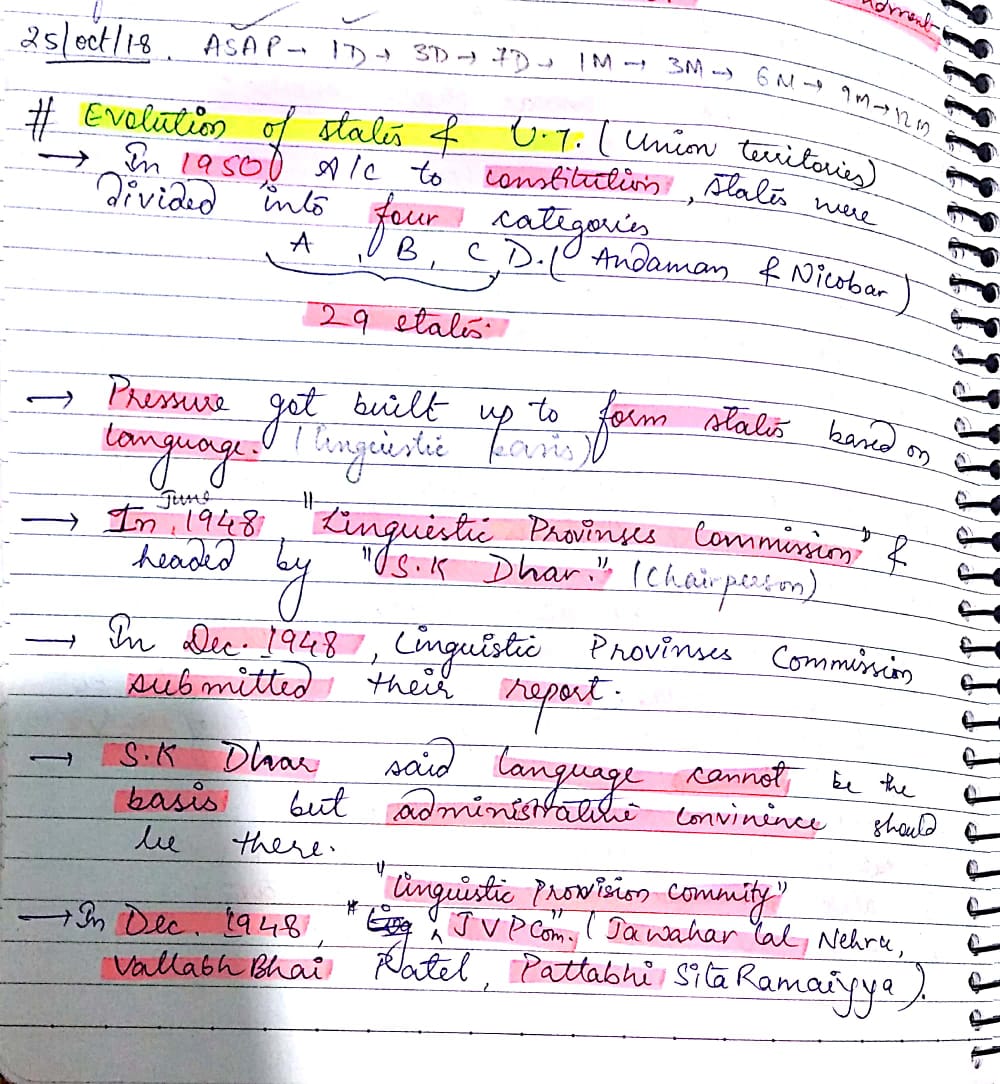 ndment
25/oct/18. ASAP → 1D → 3D → 7D → 1M → 3M → 6M → 9M → 12M
# Evolution of states & U.T. (Union territories)
→ In 1950, A/C to constitution, states were
divided into four categories
A, B, C, D. (Andaman & Nicobar)
29 states.
→ Pressure got built up to form states based on
language. (linguistic basis)
June
→ In, 1948 "Linguistic Provinses Commission" &
headed by "S.K Dhar." (Chairperson)
→ In Dec. 1948, Linguistic Provinses Commission
submitted their report.
→ S.K Dhar said language cannot be the
basis but administrative convinence should
be there.
"linguistic Provision commity"
→ In Dec. 1948, " JVP Com." (Jawahar lal Nehru,
Vallabh Bhai Patel, Pattabhi Sita Ramaiyya).